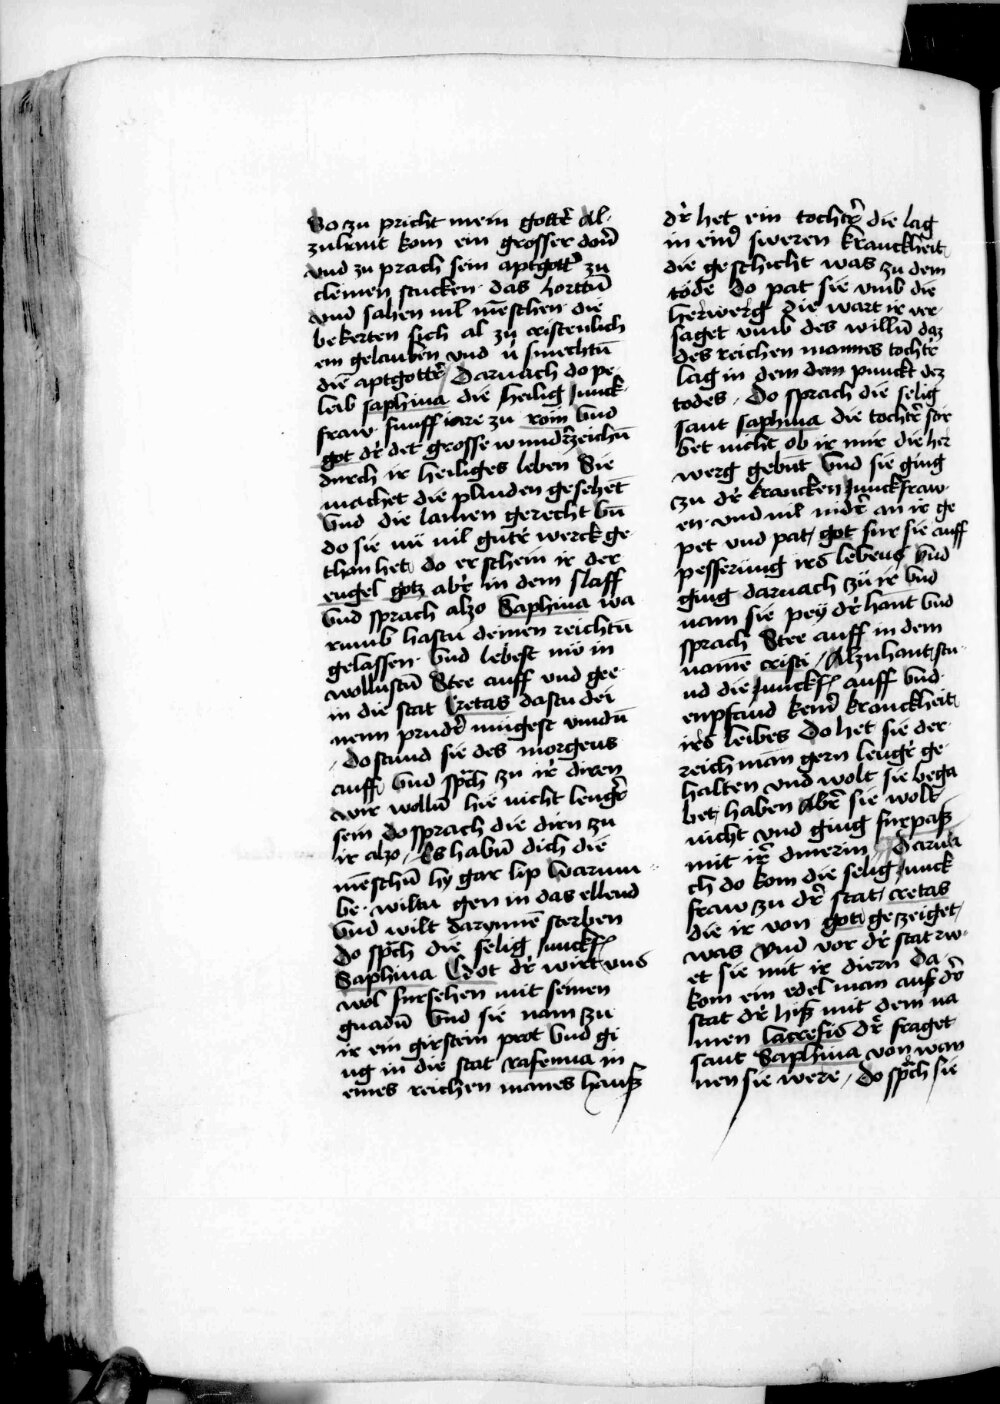 So zu pricht mein gottr̄ Al-
zuhant kom ein grosser dōn̄
vnd zu prach sein aptgott' zu
clēinen stucken · das hortt̄u
vnd sahen uil mēschen · die
bekerten sich al zu cristenlich
em gelauben vnd ū smechtū
die aptgottr̄ / Darnach do pe-
leib saphina die heilig Junck-
fraw · funff iare zu rom vnd
got dr̄ det grosse wundr̄zeichū
durch ir heiliges leben Sie
machet die plinden gesehet̄
vnd die lamen gerecht vn̄
do sie nū uil gutr̄ werck ge-
than het do erschein ir der
engel gotz abr̄ in dem slaff
vnd sprach alzo Saphina wa
rumb hastu deinen reichtū
gelassen · vnd lebest nw in
wollustū Stee auff vnd gee
in die stat Cretas dastu dei
nenn prudr̄ mugest vindū
/ Do stund sie des morgens
auff vnd sp̄ch zu ir̄ diren
wir wollū hie nicht lengr̄
sein do sprach die dirn zu
ir alzo / Es habū dich die
mēschū hy gar lip warum
be · wiltu gen in das ellend
vnd wilt darynnē sterben
do sp̄ch die selig Junckf̄
Saphina Got dr̄ wirt vns
wol fursehen mit seinen
gnadū vnd sie nam zu
ir ein girstein prot vnd gi
ng in die stat rafenna in
eines reichen manes hauß
dr̄ het ein tochtr̄ die lag
in ein̄ sweren kranckheit
die geschicht was zu dem
tode Do pat sie vmb die
herwerg die wart ir ver-
saget vmb des willū daz
des reichen mannes tochtr̄
lag in dem dem punckt dez
todes / Do sprach die selig
sant saphina die tochtr̄ stir
bet nicht ob ir mir die her
werg gebint vnd sie ging
zu dr̄ krancken Junckfraw
en · vnd uil nidr̄ an ir ge
pet vnd pat / got fur sie auff
pesserung irs lebens vnd
ging darnach zū ir vnd
nam sie pey dr̄ hant vnd
sprach Stee auff in dem
namē cristi / Alzuhant / stu
nd die Junckf̄ auff vnd
enpfand kein̄ kranckheit
irs leibes Do het sie der
reich man gern lengr̄ ge-
halten vnd wolt sie bega
bet haben Abr̄ sie wolt
nicht vnd ging furpaß
mit ir̄ dinerin / Darnā
ch do kom die selig Junck
fraw zu dr̄ stat / cretas
die ir von got gezeiget /
was vnd vor dr̄ stat rw-
et sie mit ir diern da
kom ein edel man auß dr̄
stat dr̄ hiß mit dem na
men lacrefis dr̄ fraget
sant Saphina von wan
nen sie were / Do sp̄ch sie